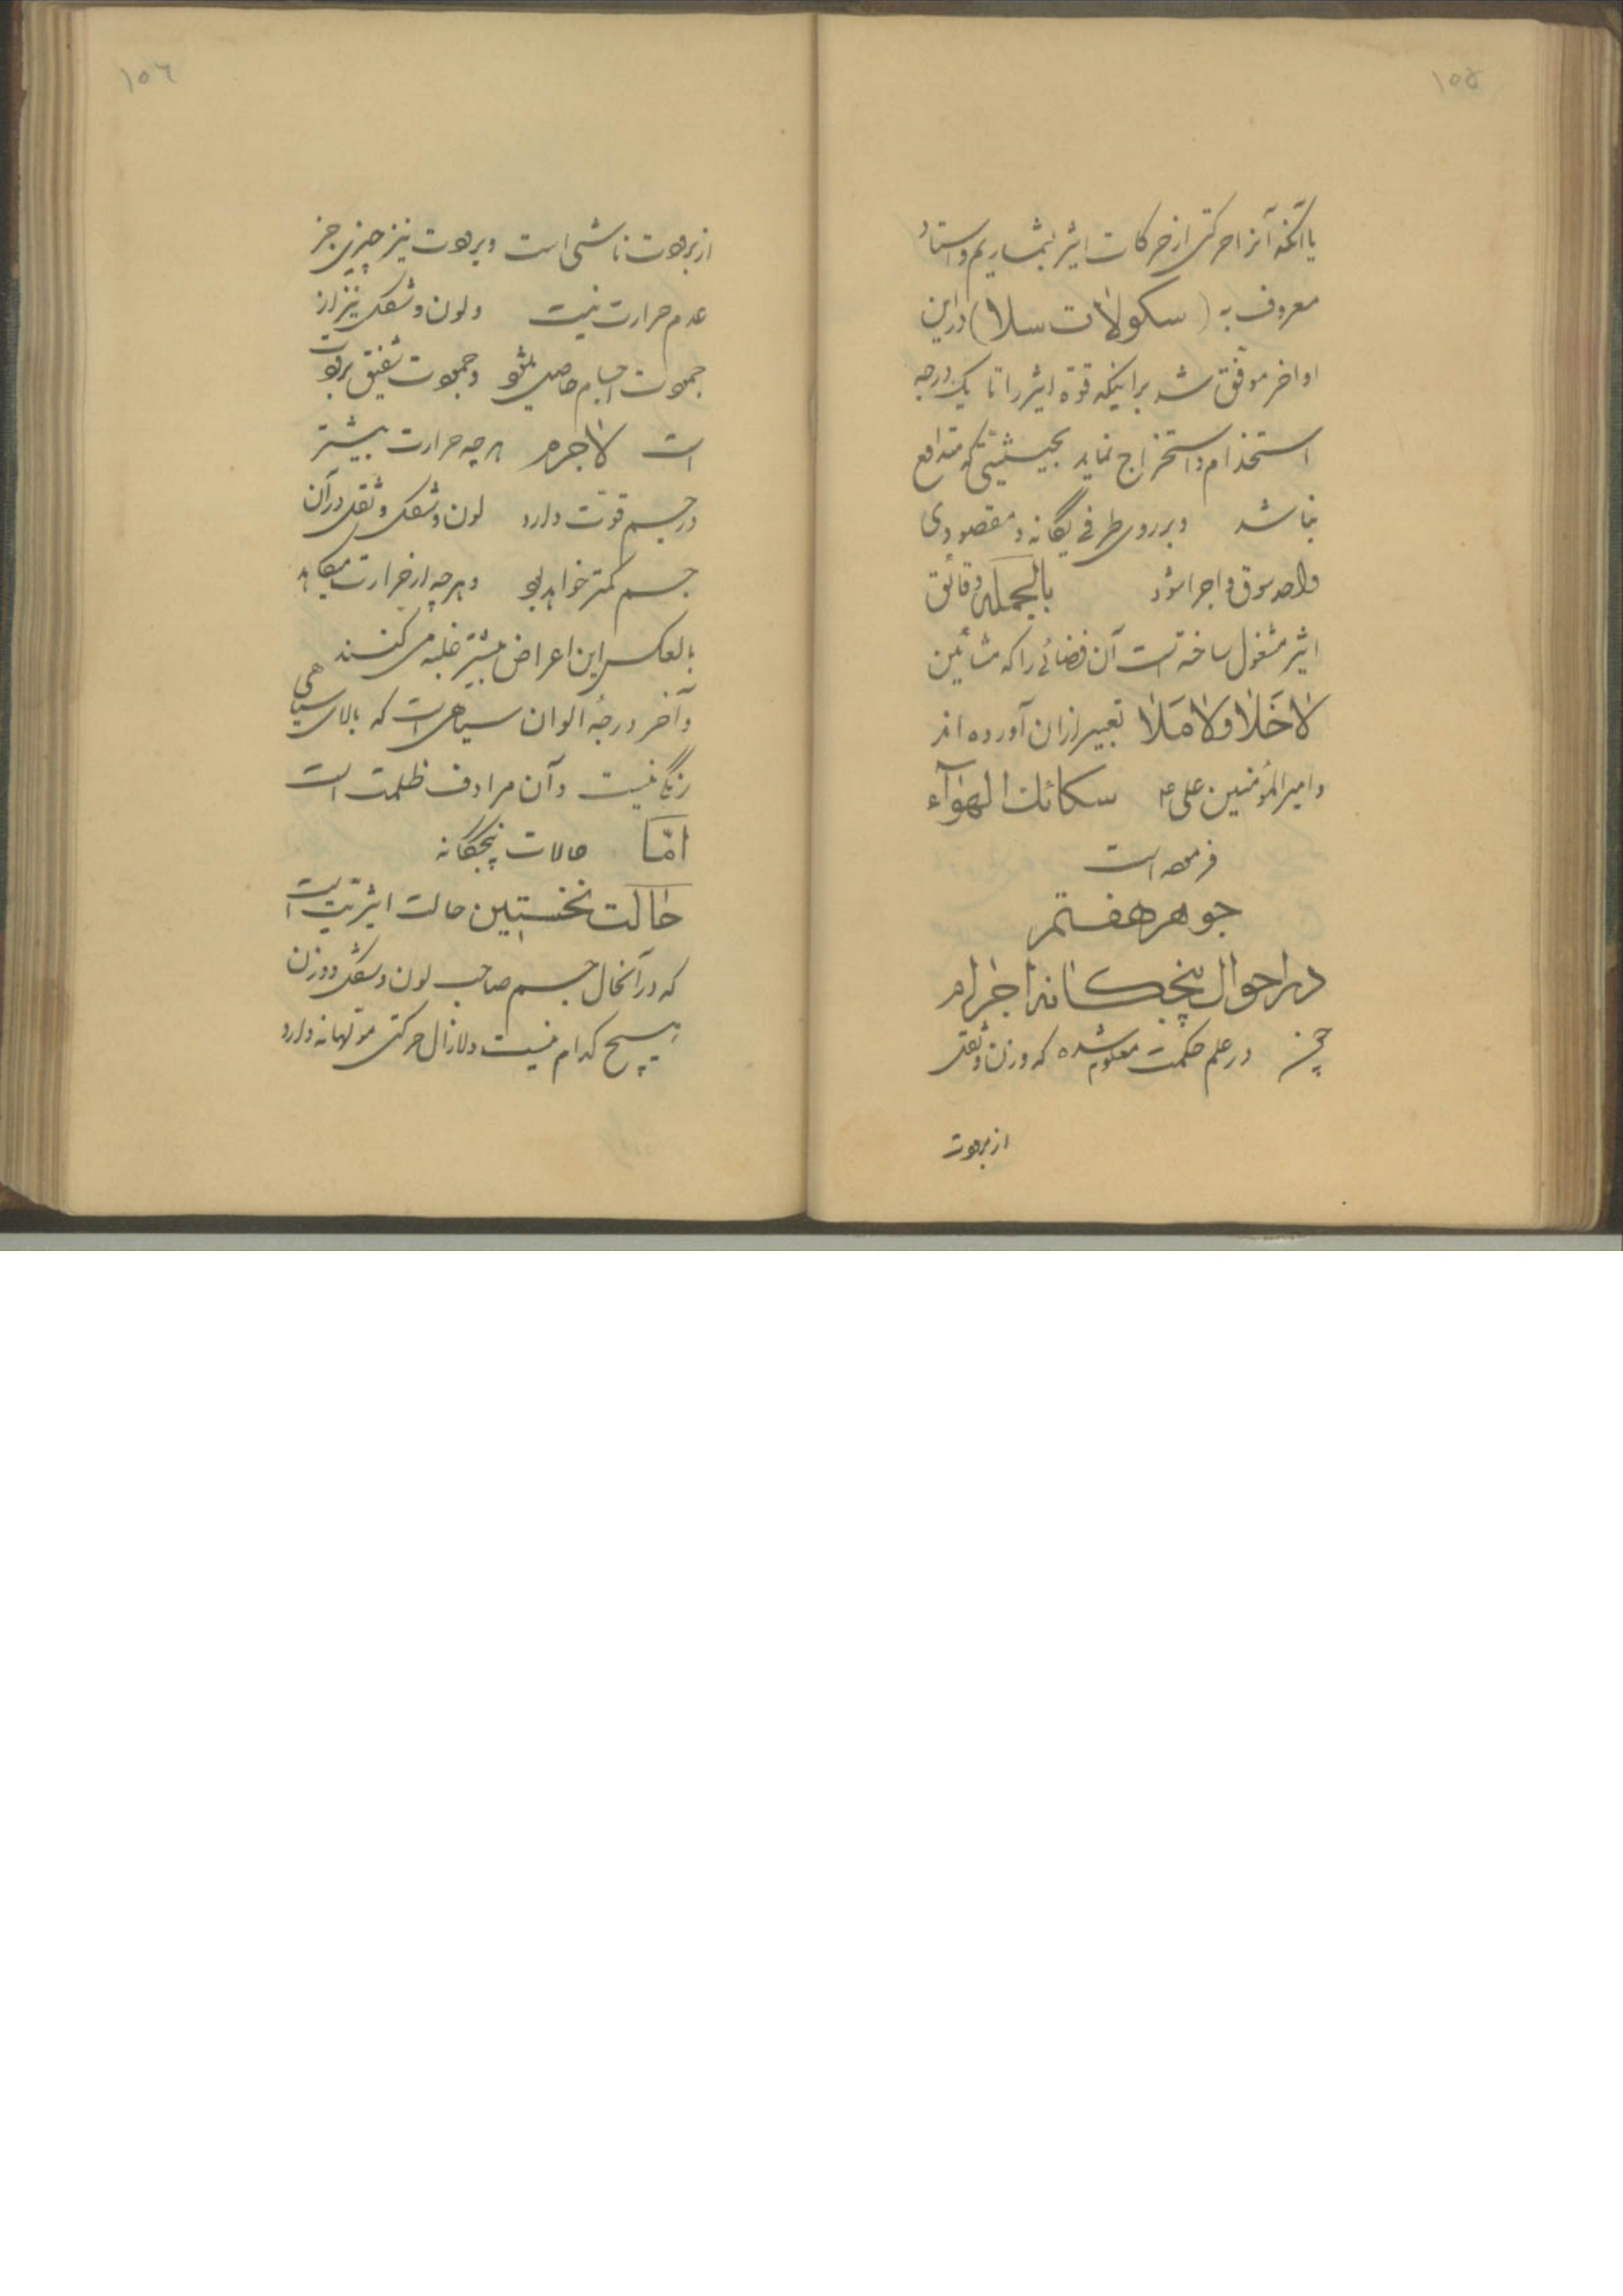 ١٥٥
یا آنکه آنرا حرکتی از حرکات اثیر بشماریم و استاد
معروف به (سکولات سلا) در این
اواخر موفّق شد بر اینکه قوهٔ اثیر را تا یک درجه
استخدام و استخراج نماید بحیثیتی که متدافع
نباشد و بر روی طرفی یگانه و مقصودی
واحد سوق و اجرا شود بالجمله دقائق
اثیر مشغول ساخته است آن فضائی را که مشائین
لاخَلَا ولا مَلَا تعبیر از آن آورده اند
و امیر المؤمنین علی ع سکائك الهوآء
فرموده است
جوهر هفتم
در احوال پنجگانه اجرام
چون در علم حکمت معلوم شده که وزن و ثقل
از برودت
١٥٦
از برودت ناشی است و برودت نیز چیزی جز
عدم حرارت نیست و لون و شکل نیز از
جمودت اجسام حاصل میشود و جمودت شقیق برودت
است لاجرم هر چه حرارت بیشتر
در جسم قوّت دارد لون و شکل و ثقل در آن
جسم کمتر خواهد بود و هر چه از حرارت میکاهد
بالعکس این اعراض بیشتر غلبه می کنند
و آخر درجهٔ الوان سیاهی است که بالای سیاهی
رنگی نیست و آن مرادف ظلمت است
امّا حالات پنجگانه
حالت نخستین حالت اثیریّت است
که در آنحال جسم صاحب لون و شکل و وزن
هیچ کدام نیست و لازال حرکتی متولهانه دارد